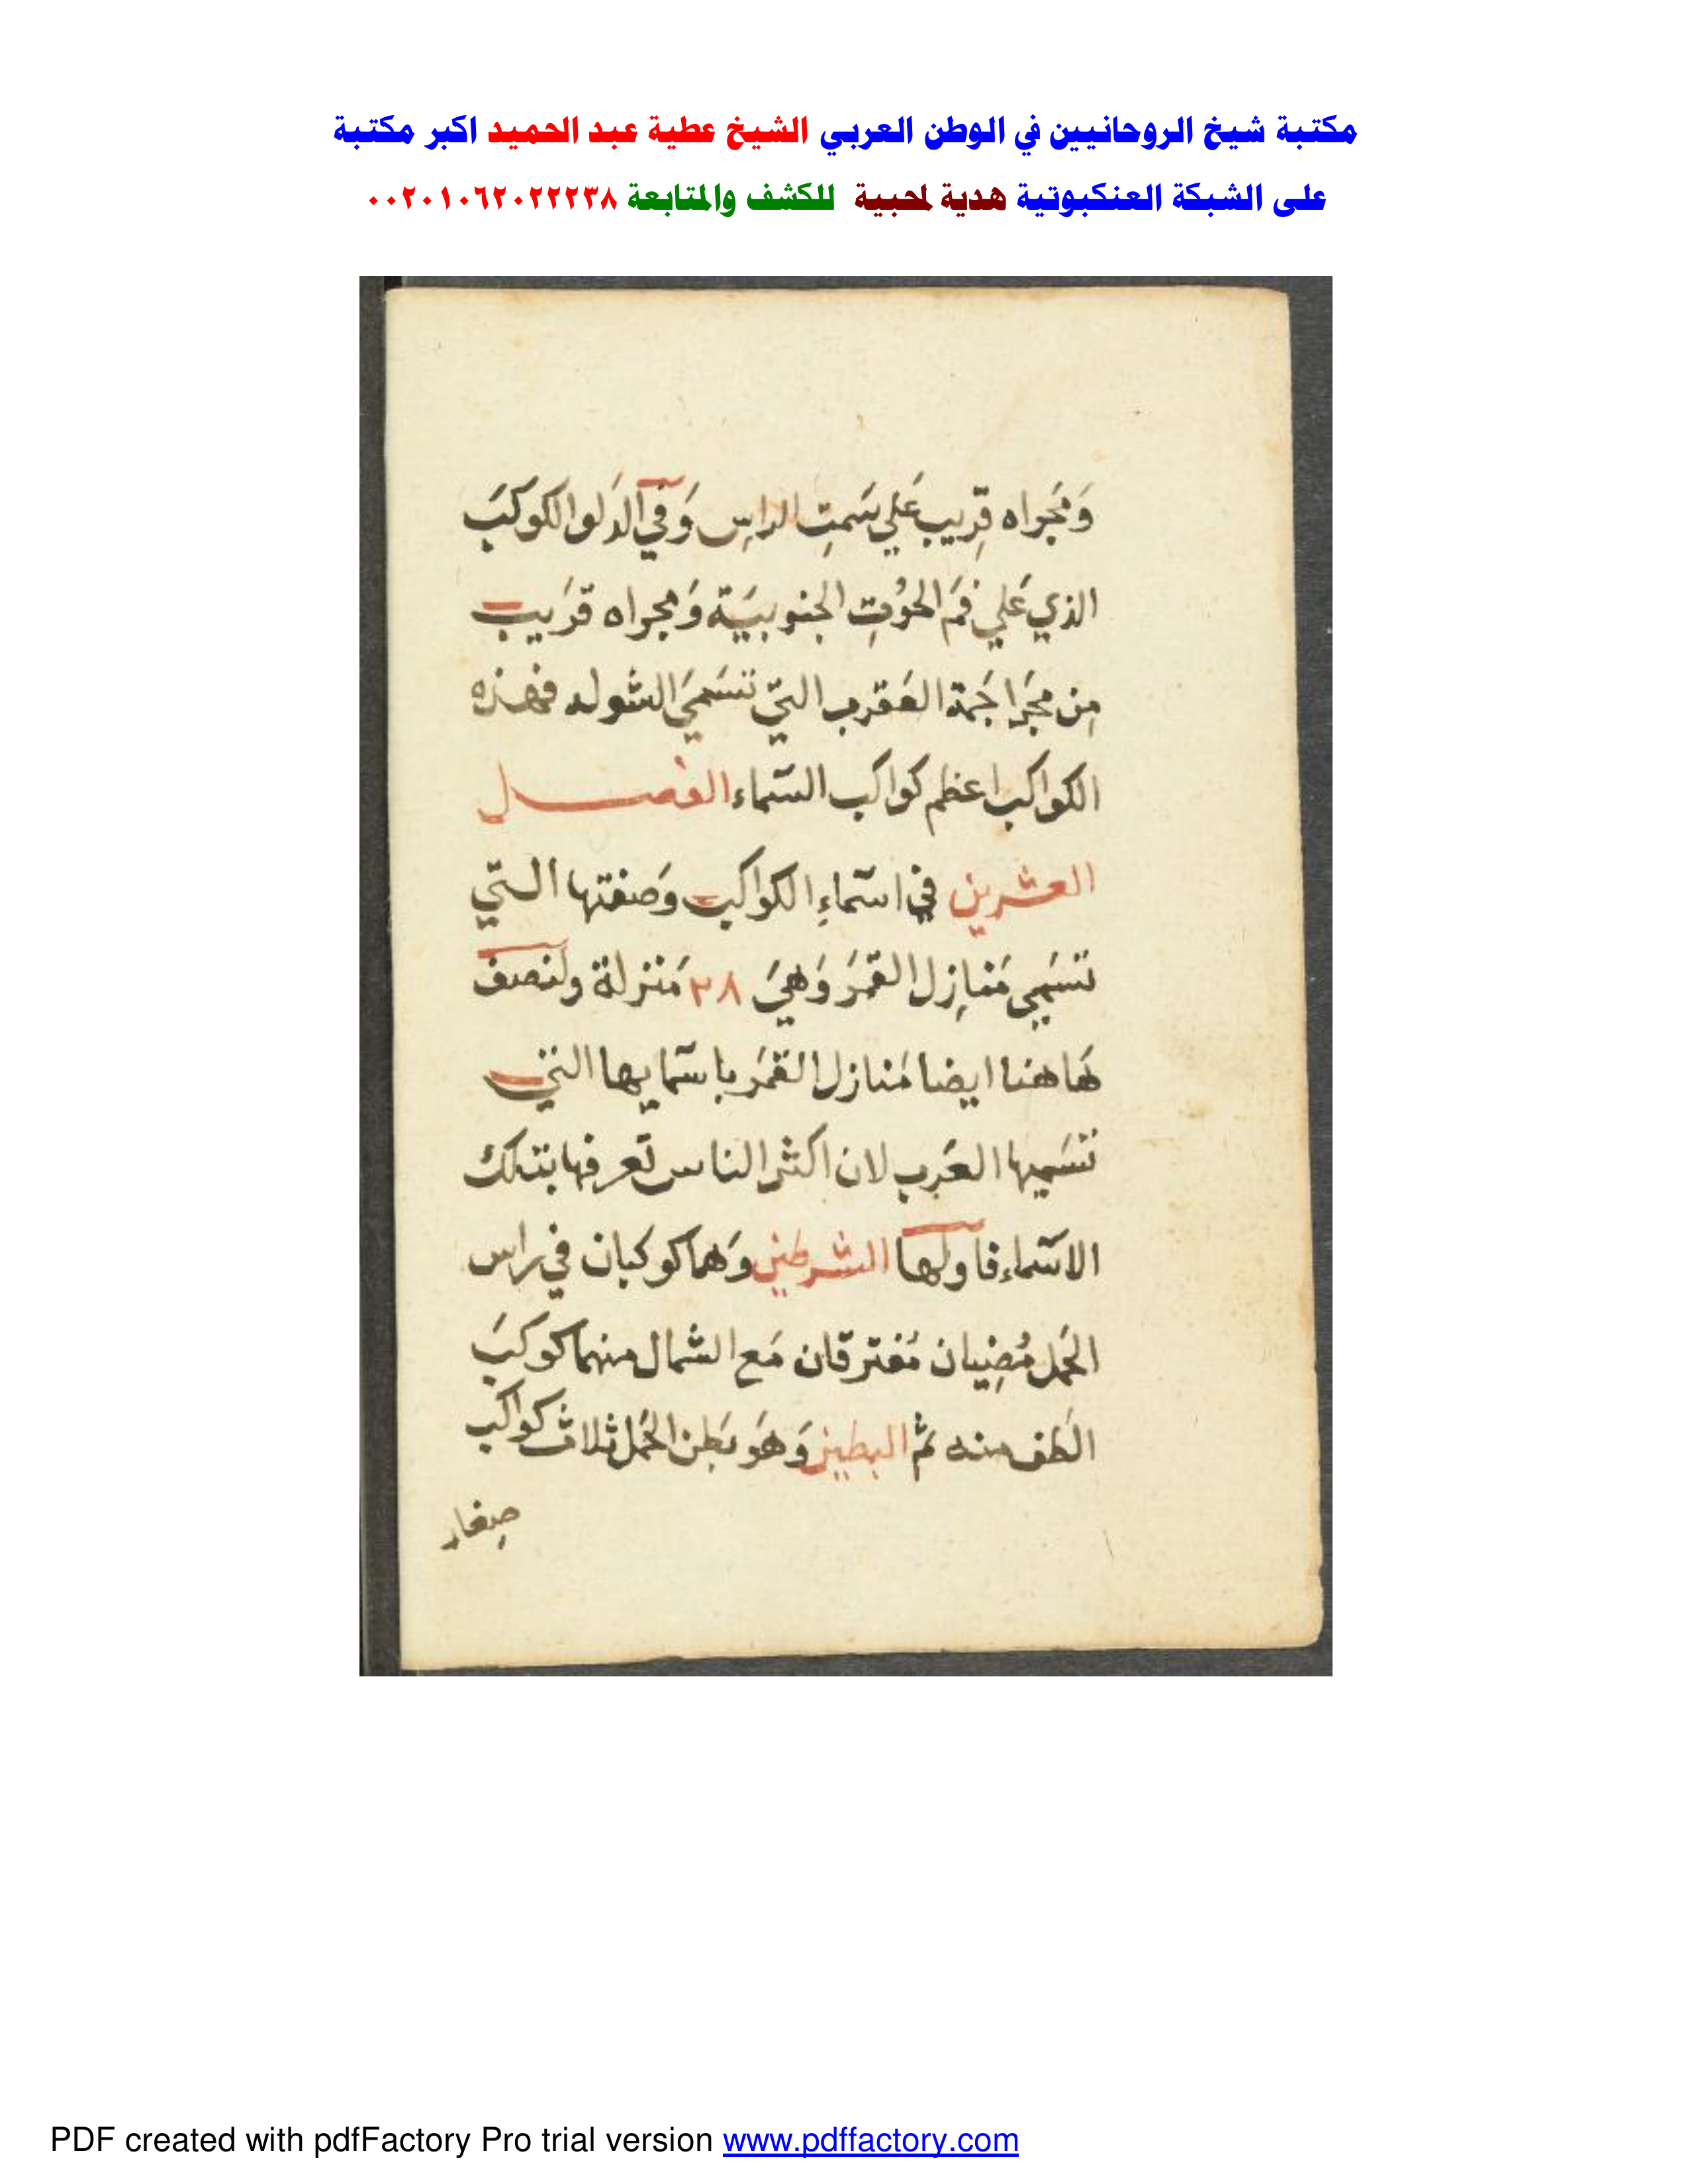 مكتبة شيخ الروحانيين في الوطن العربي الشيخ عطية عبد الحميد اكبر مكتبة
على الشبكة العنكبوتية هدية لمحبية للكشف والمتابعة ٠٠٢٠١٠٦٢٠٢٢٢٣٨
وَمَجراه قِريب عَلي سَمتِ الراسِ وَفي الدَلو الكوكبَ
الذي عَلي فمَ الحوُتِ الجنوبيَة وَمجراه قرَيب
مِن مجرَا حَمة العَقرب التي تتسَميَ الشوله فهذه
الكواكب اعظم كواكب السَماء الفصل
العشرين في اسَماءِ الكواكب وَصفتها التي
تتسَمي مَنازِل القمَر وَهيَ ٢٨ مَنزلة ولنصف
هَاهنا ايضا مَنازل القمَر باسَمايها التي
تتسَميها العَرب لان اكثر الناس تَعرفها بتلك
الاسَماء فاَولها الشرطين وَهما كوكبان في راس
الحَمل مُضِيان مَفترقان مَع الشمال منهما كوكبَ
الَطف منه ثم البطين وَهوَ بَطن الحَمل ثلاث كواكب
صِغار
PDF created with pdfFactory Pro trial version www.pdffactory.com